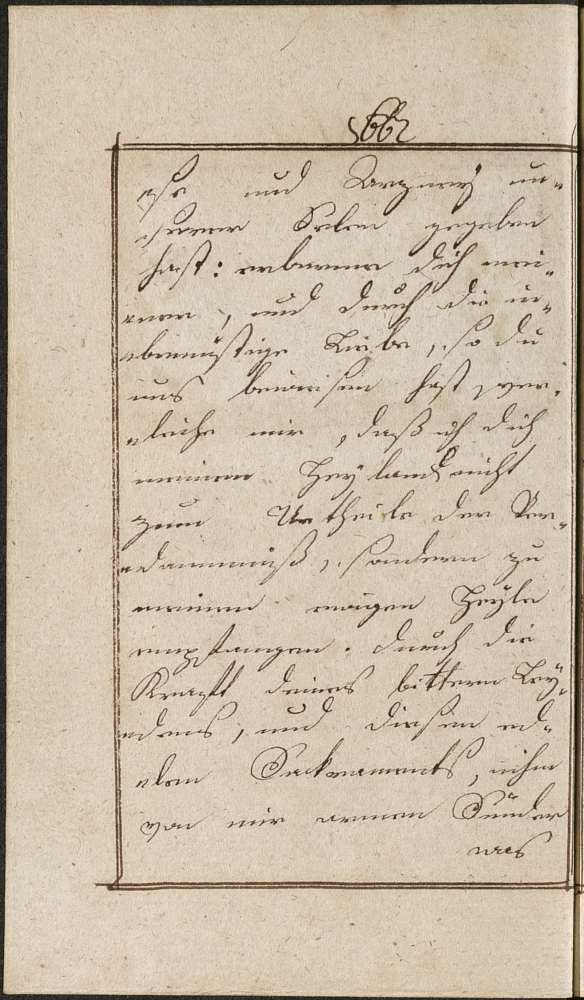 662
se und Arzney un-
serer Selen gegeben
hast: erbarme dich mei-
ner, und durch die in-
brünstige Liebe, so du
uns bewiesen hast, ver-
leihe mir, daß ich dich
meinen Heyland nicht
zum Urtheile der Ver-
dammniß, sondern zu
meinem ewigen Heyle
empfangen. durch die
Krafft deines bittern Ley-
dens, und diesen ed-
len Sackraments, nihm
von mir armen Sünder
was